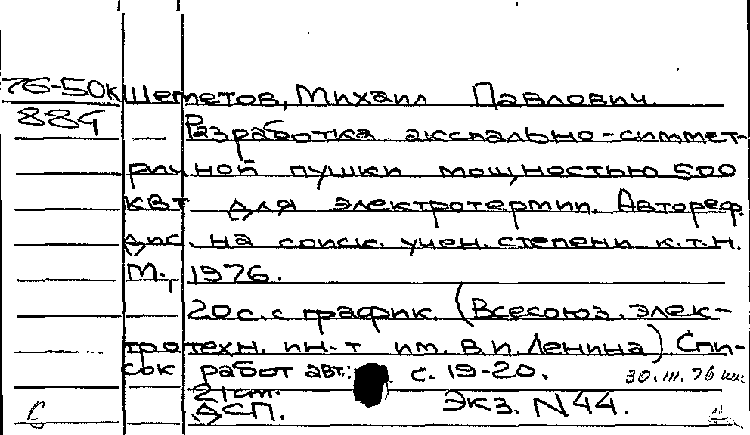 76-50к Шеметов, Михаил Павлович.
884 Разработка аксиально-симмет-
ричной пушки мощностью 500
квт для электротермии. Автореф.
дис. на соиск. учен. степени к.т.н.
М., 1976.
20с. с график. (Всесоюз. элек-
тротехн. ин-т им. В.И. Ленина) Спи-
сок работ авт.: с. 19-20.
30.III.76
21см.
ДСП. Экз. N44.